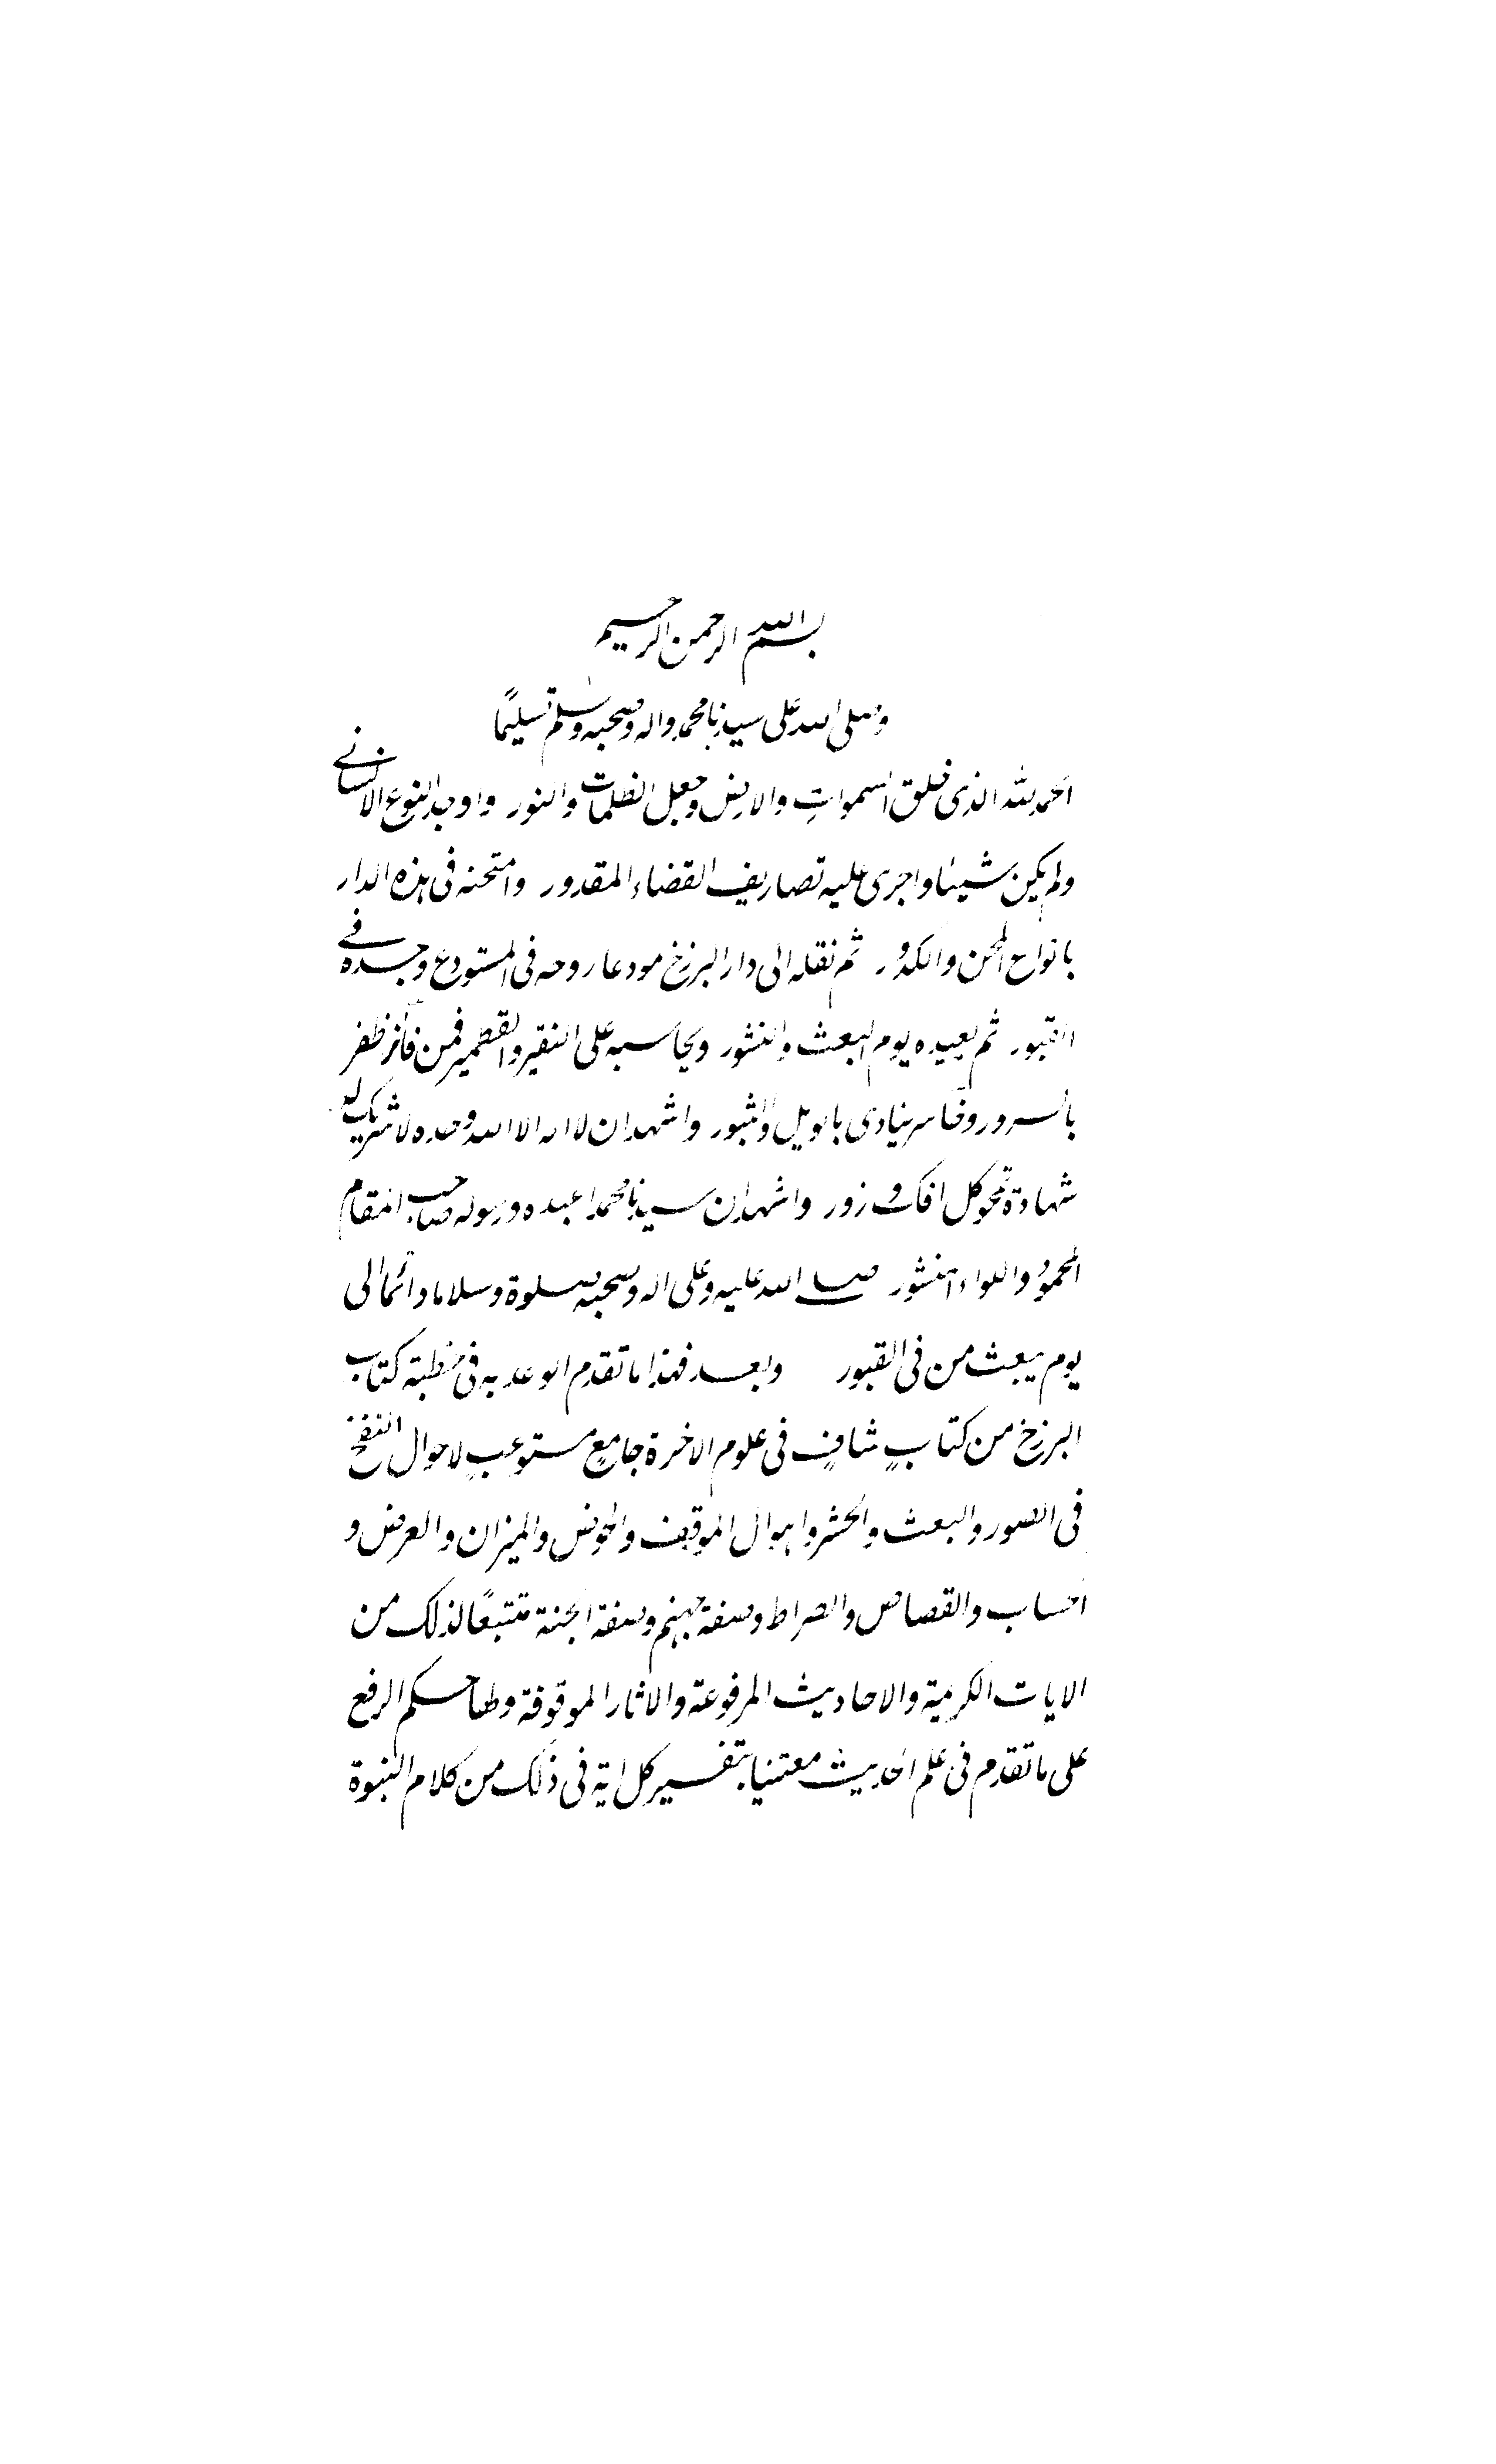 بسم الله الرحمن الرحيم
وصلى الله على سيدنا محمد واله وصحبه وسلم تسليمًا
الحمد لله الذى خلق السموات والارض وجعل الظلمات والنور واوجد النوع الانسانى
ولم يكن شيئا واجرى عليه تصاريف القضاء المقدور وامتحنه فى هذه الدار
بانواع المحن والكدور ثم نقله الى دار البرزخ مودعا روحه فى المستودع وجسده فى
القبور ثم يعيده يوم البعث والنشور ويحاسبه على النقير والقطمير فمن فائز ظفر
بالسرور وخاسر ينادى بالويل والثبور واشهد ان لا اله الا الله وحده لا شريك له
شهادة تمحو كل افك وزور واشهد ان سيدنا محمدا عبده ورسوله صاحب المقام
المحمود واللواء المنشور صلى الله عليه وعلى اله وصحبه صلوة وسلاما دائما الى
يوم يبعث من فى القبور وبعد فهذا ما تقدم الوعد به فى خطبة كتاب
البرزخ من كتابٍ شافٍ فى علوم الاخرة جامعٍ مستوعبٍ لاحوال النفخ
فى الصور والبعث والحشر واهوال الموقف والحوض والميزان والعرض و
الحساب والقصاص والصراط وصفة جهنم وصفة الجنة متتبعًا لذلك من
الايات الكريمة والاحاديث المرفوعة والاثار الموقوفة ولها حكم الرفع
على ما تقدم فى علم الحديث معتنيا بتفسير كل اية فى ذلك من كلام النبوة